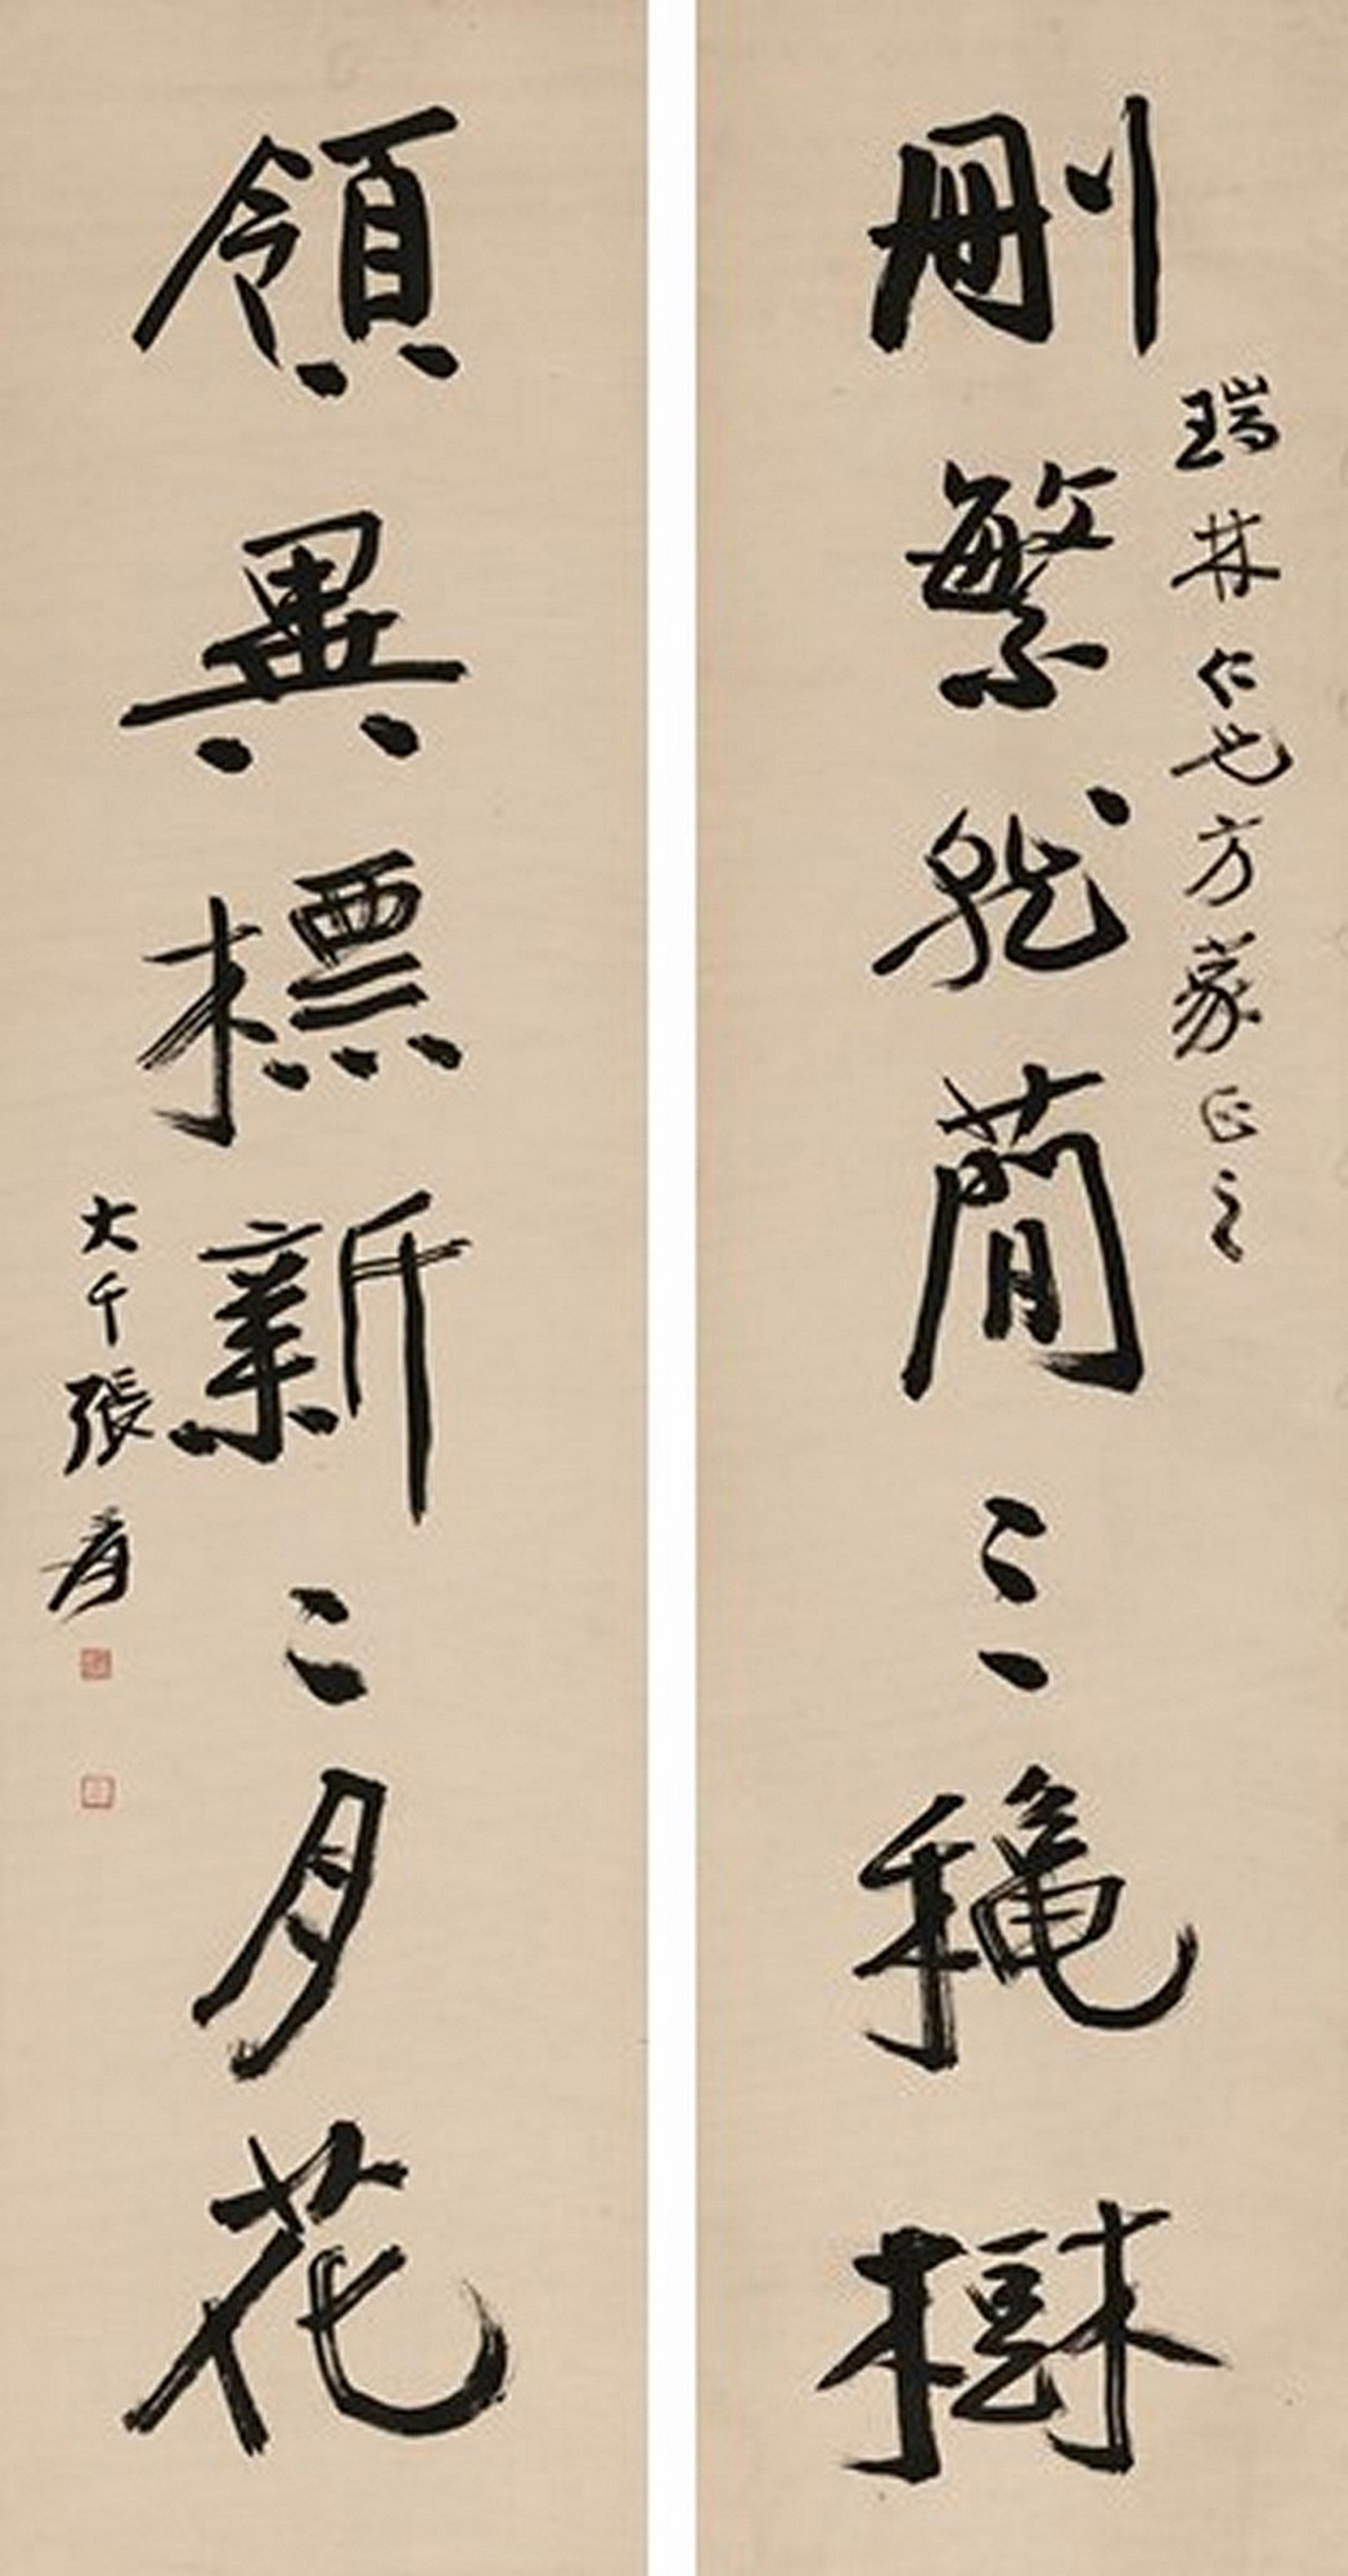 瑞林仁兄方家正之
刪繁就簡三穐樹
領異標新二月花
大千張爰